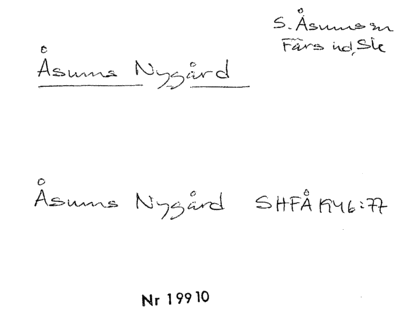 S. Åsums sn
Färs hd, Sk
Åsums Nygård
Åsums Nygård SHFÅ 1946:77
Nr 19910